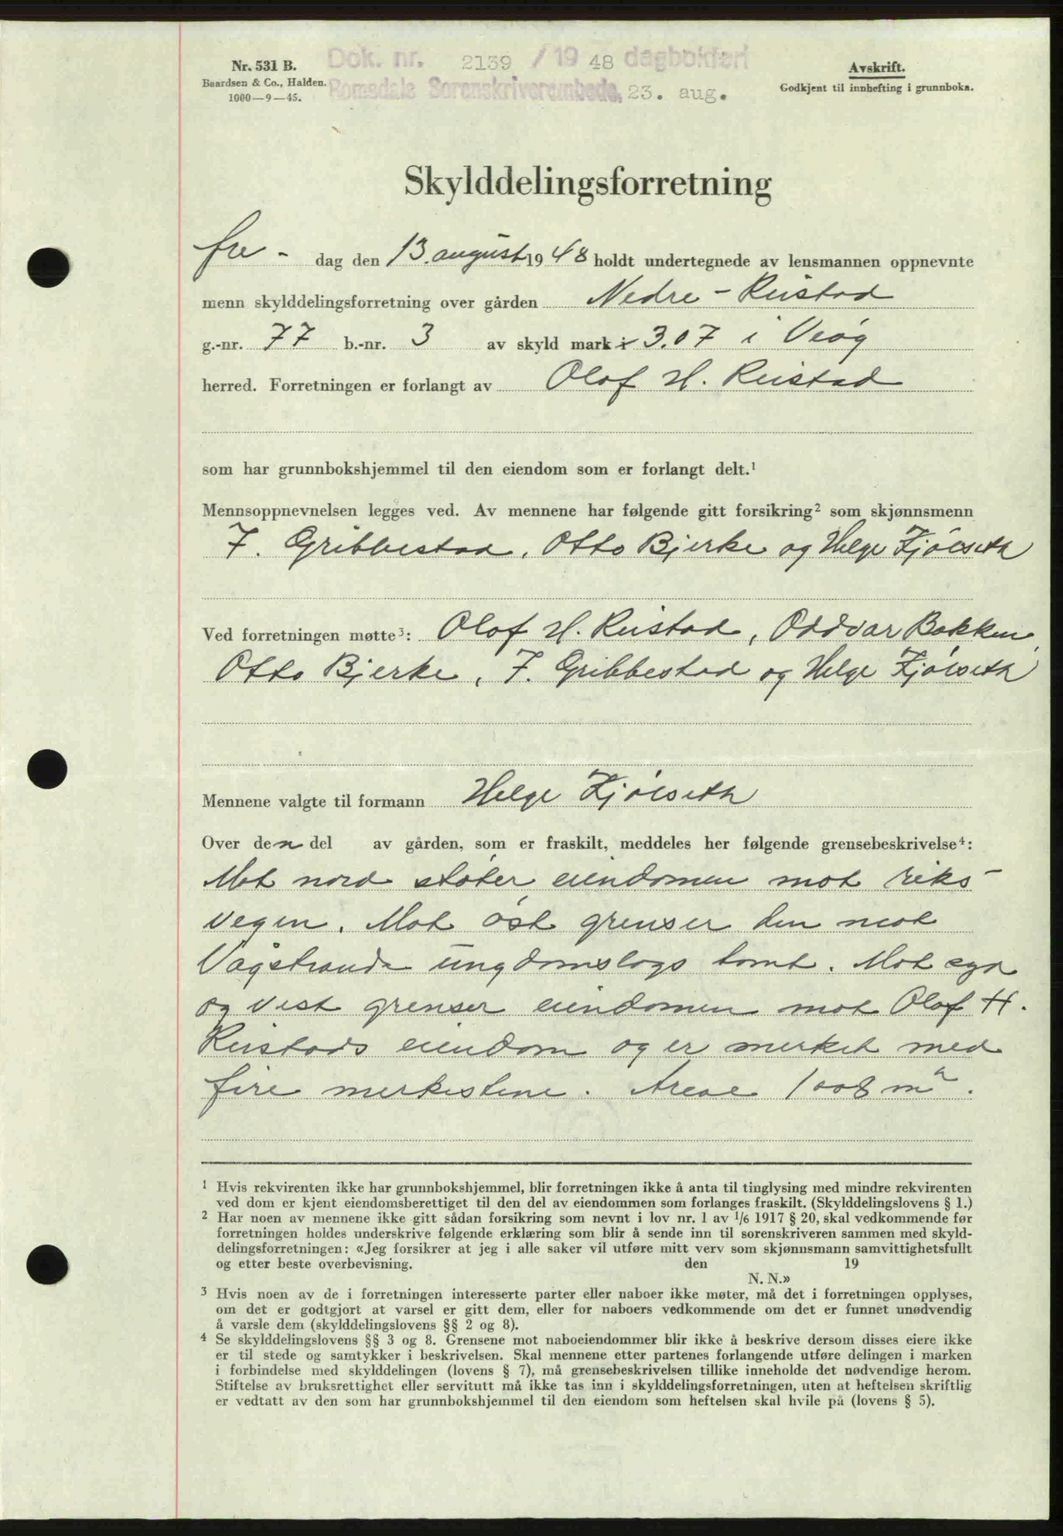 Nr. 531 B.
Baardsen & Co., Halden.
1000—9—45.
Dok. nr. 2139 / 19 48 dagbokført
Romsdals Sorenskriverembede, 23. aug.
Avskrift.
Godkjent til innhefting i grunnboka.
Skylddelingsforretning
fre - dag den 13. august 1948 holdt undertegnede av lensmannen oppnevnte
menn skylddelingsforretning over gården Nedre - Reistad
g.-nr. 77 b.-nr. 3 av skyld mark 3.07 i Veøy
herred. Forretningen er forlangt av Olof H. Reistad
som har grunnbokshjemmel til den eiendom som er forlangt delt.¹
Mennsoppnevnelsen legges ved. Av mennene har følgende gitt forsikring² som skjønnsmenn
J. Gribbestad, Otto Bjerke og Helge Kjølseth
Ved forretningen møtte³: Olof H. Reistad, Oddvar Bakken,
Otto Bjerke, J. Gribbestad og Helge Kjølseth
Mennene valgte til formann Helge Kjølseth
Over den del av gården, som er fraskilt, meddeles her følgende grensebeskrivelse⁴:
Mot nord støter eiendomen mot riks-
vegen. Mot øst grenser den mot
Vågstranda ungdomslags tomt. Mot syd
og vest grenser eiendomen mot Olof H.
Reistads eiendom og er merket med
fire merkesteine. Areal 1008 m².
¹ Hvis rekvirenten ikke har grunnbokshjemmel, blir forretningen ikke å anta til tinglysing med mindre rekvirenten
ved dom er kjent eiendomsberettiget til den del av eiendommen som forlanges fraskilt. (Skylddelingslovens § 1.)
² Har noen av mennene ikke gitt sådan forsikring som nevnt i lov nr. 1 av 1/6 1917 § 20, skal vedkommende før
forretningen holdes underskrive følgende erklæring som blir å sende inn til sorenskriveren sammen med skyld-
delingsforretningen: «Jeg forsikrer at jeg i alle saker vil utføre mitt verv som skjønnsmann samvittighetsfullt
og etter beste overbevisning. den 19
N. N.»
³ Hvis noen av de i forretningen interesserte parter eller naboer ikke møter, må det i forretningen opplyses,
om det er godtgjort at varsel er gitt dem, eller for naboers vedkommende om det er funnet unødvendig
å varsle dem (skylddelingslovens §§ 2 og 8).
⁴ Se skylddelingslovens §§ 3 og 8. Grensene mot naboeiendommer blir ikke å beskrive dersom disses eiere ikke
er til stede og samtykker i beskrivelsen. Skal mennene etter partenes forlangende utføre delingen i marken
i forbindelse med skylddelingen (lovens § 7), må grensebeskrivelsen tillike inneholde det nødvendige herom.
Stiftelse av bruksrettighet eller servitutt må ikke tas inn i skylddelingsforretningen, uten at heftelsen skriftlig
er vedtatt av den som har grunnbokshjemmel til den eiendom som heftelsen skal hvile på (lovens § 5).